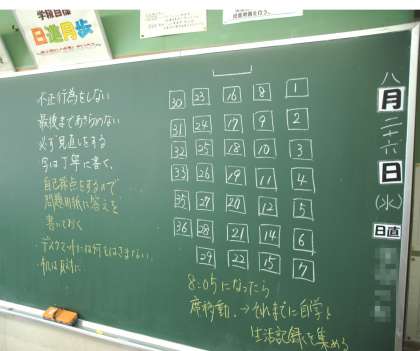 日進月歩
不正行為をしない
最後まであきらめない
必ず見直しをする
字は丁寧に書く、
自己採点をするので
問題用紙に答えを
書いておく
デスクマットには何もはさまない
机は反対に
30 23 16 8 1
31 24 17 9 2
32 25 18 10 3
33 26 19 11 4
35 27 20 12 5
36 28 21 14 6
29 22 15 7
8:05になったら
席移動.→それまでに自学と
生活記録を集める
八月二十六日(水)
日直